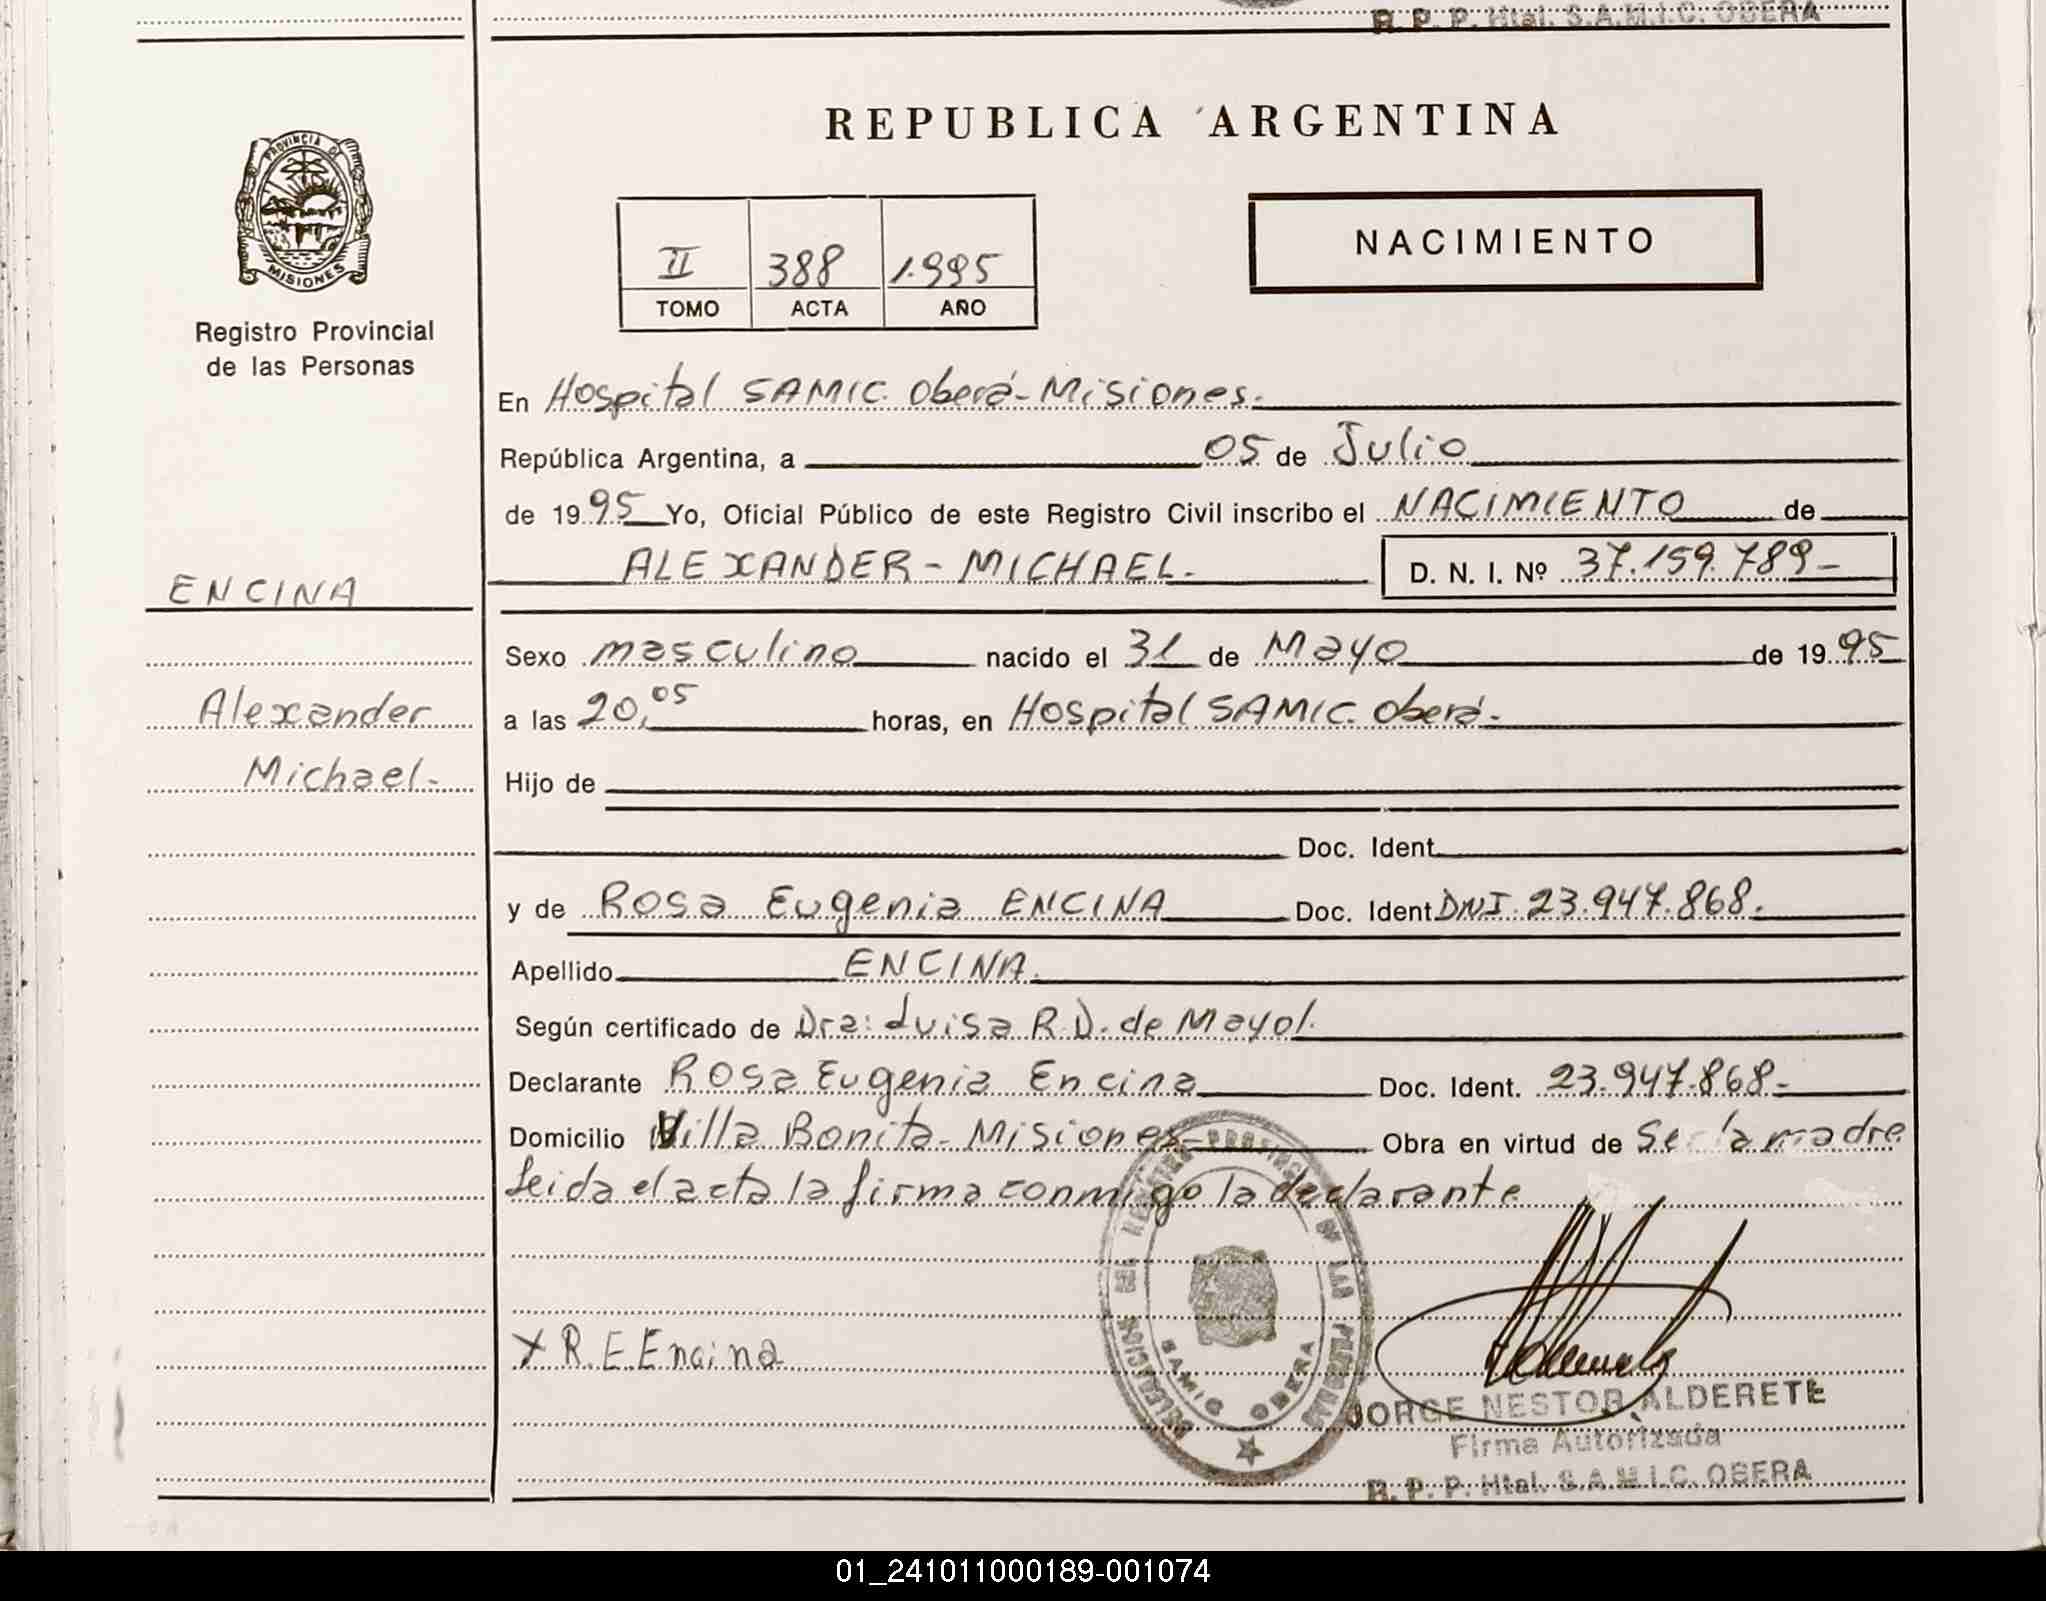 R. P. P. Htal. S.A.M.I.C. OBERA
PROVINCIA DE
MISIONES
Registro Provincial
de las Personas
ENCINA
Alexander
Michael-
REPUBLICA ARGENTINA
II 388 1.995
TOMO ACTA AÑO
NACIMIENTO
En Hospital SAMIC. Oberá-Misiones.
República Argentina, a 05 de Julio
de 1995 Yo, Oficial Público de este Registro Civil inscribo el NACIMIENTO de
ALEXANDER-MICHAEL- D. N. I. Nº 37.159.789-
Sexo masculino nacido el 31 de Mayo de 1995
a las 20,05 horas, en Hospital SAMIC. Oberá-
Hijo de
Doc. Ident.
y de Rosa Eugenia ENCINA Doc. Ident DNI. 23.947.868.
Apellido ENCINA.
Según certificado de Dra: Luisa R.D. de Mayol.
Declarante Rosa Eugenia Encina Doc. Ident. 23.947.868-
Domicilio Villa Bonita-Misiones- Obra en virtud de Ser la madre
Leida el acta la firma conmigo la declarante
X R.E Encina
DELEGACION DEL REGISTRO PROVINCIAL DE LAS PERSONAS
SAMIC OBERA
JORGE NESTOR ALDERETE
Firma Autorizada
R. P. P. Htal. S.A.M.I.C. OBERA
01_241011000189-001074